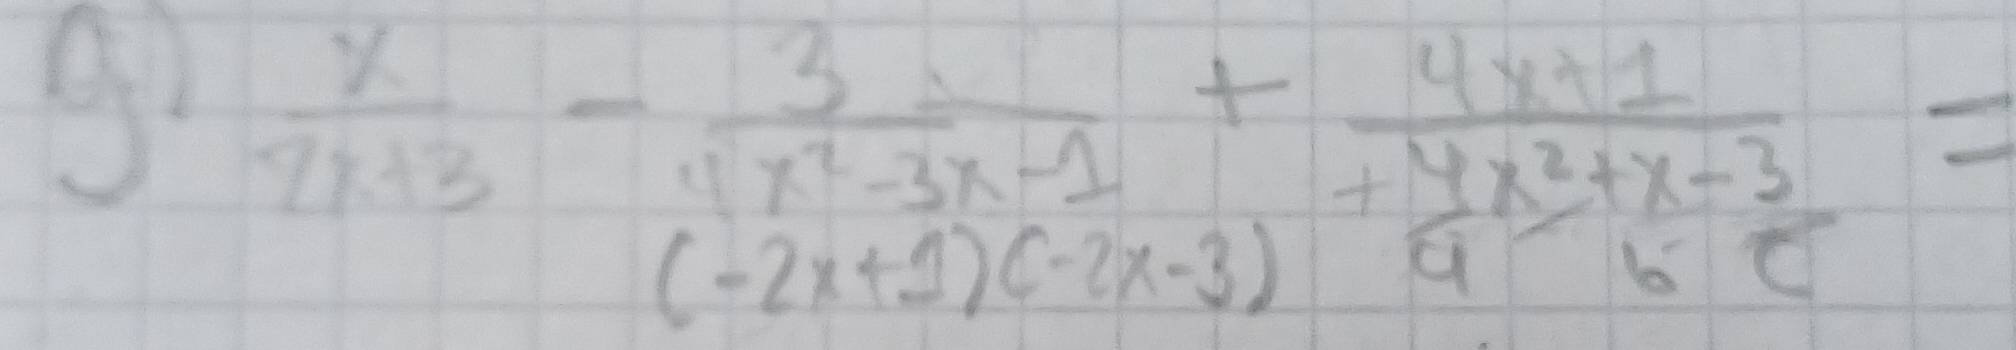 g) x/(2x+3) - 3/(4x²-3x-1) + (4x+1)/(+4x²+x-3) =
(-2x+1)(-2x-3) a b c